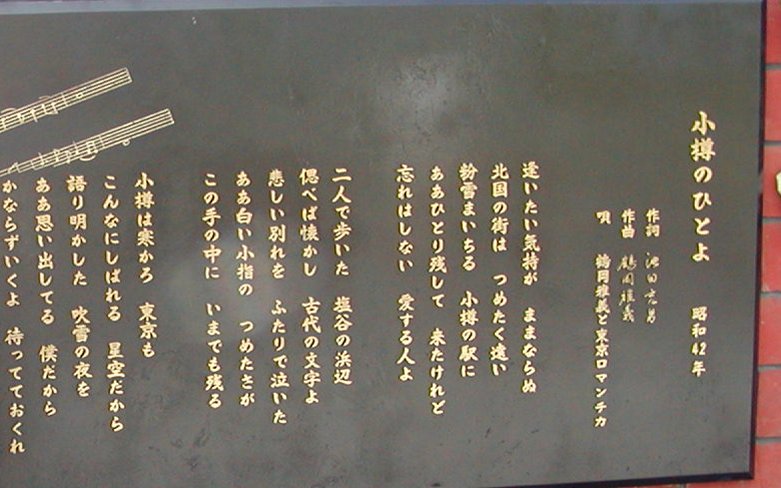 小樽のひとよ　昭和42年
作詞　池田充男
作曲　鶴岡雅義
唄　鶴岡雅義と東京ロマンチカ
逢いたい気持が　ままならぬ
北国の街は　つめたく遠い
粉雪まいちる　小樽の駅に
ああひとり残して　来たけれど
忘れはしない　愛する人よ
二人で歩いた　塩谷の浜辺
偲べば懐かし　古代の文字よ
悲しい別れを　ふたりで泣いた
ああ白い小指の　つめたさが
この手の中に　いまでも残る
小樽は寒かろ　東京も
こんなにしばれる　星空だから
語り明かした　吹雪の夜を
ああ思い出してる　僕だから
かならずいくよ　待ってておくれ